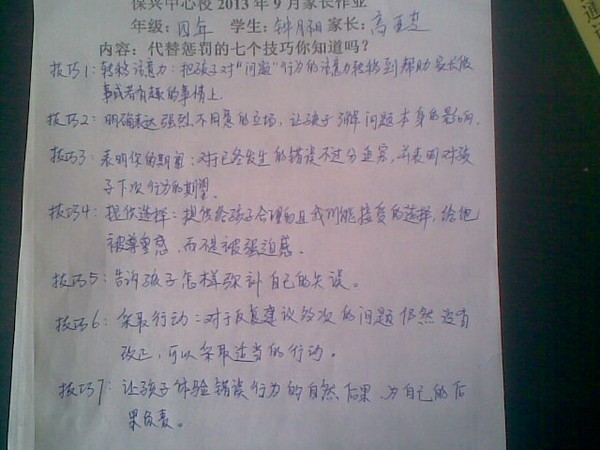 保兴中心校2013年9月家长作业
年级:四年 学生:钟 家长:高
内容:代替惩罚的七个技巧你知道吗?
技巧1:转移注意力:把孩子对“问题”行为的注意力转移到帮助家长做
事或者有趣的事情上.
技巧2:明确表达强烈不同意的立场,让孩子了解问题本身的影响.
技巧3:表明你的期望:对已经发生的错误不过分追究,并表明对孩
子下次行为的期望.
技巧4:提供选择:提供给孩子合理的且我们能接受的选择,给他
被尊重感,而不是被强迫感.
技巧5:告诉孩子怎样弥补自己的失误。
技巧6:采取行动:对于反复建议多次的问题仍然没有
改正,可以采取适当的行动。
技巧7:让孩子体验错误行为的自然后果,为自己的后
果负责。
通